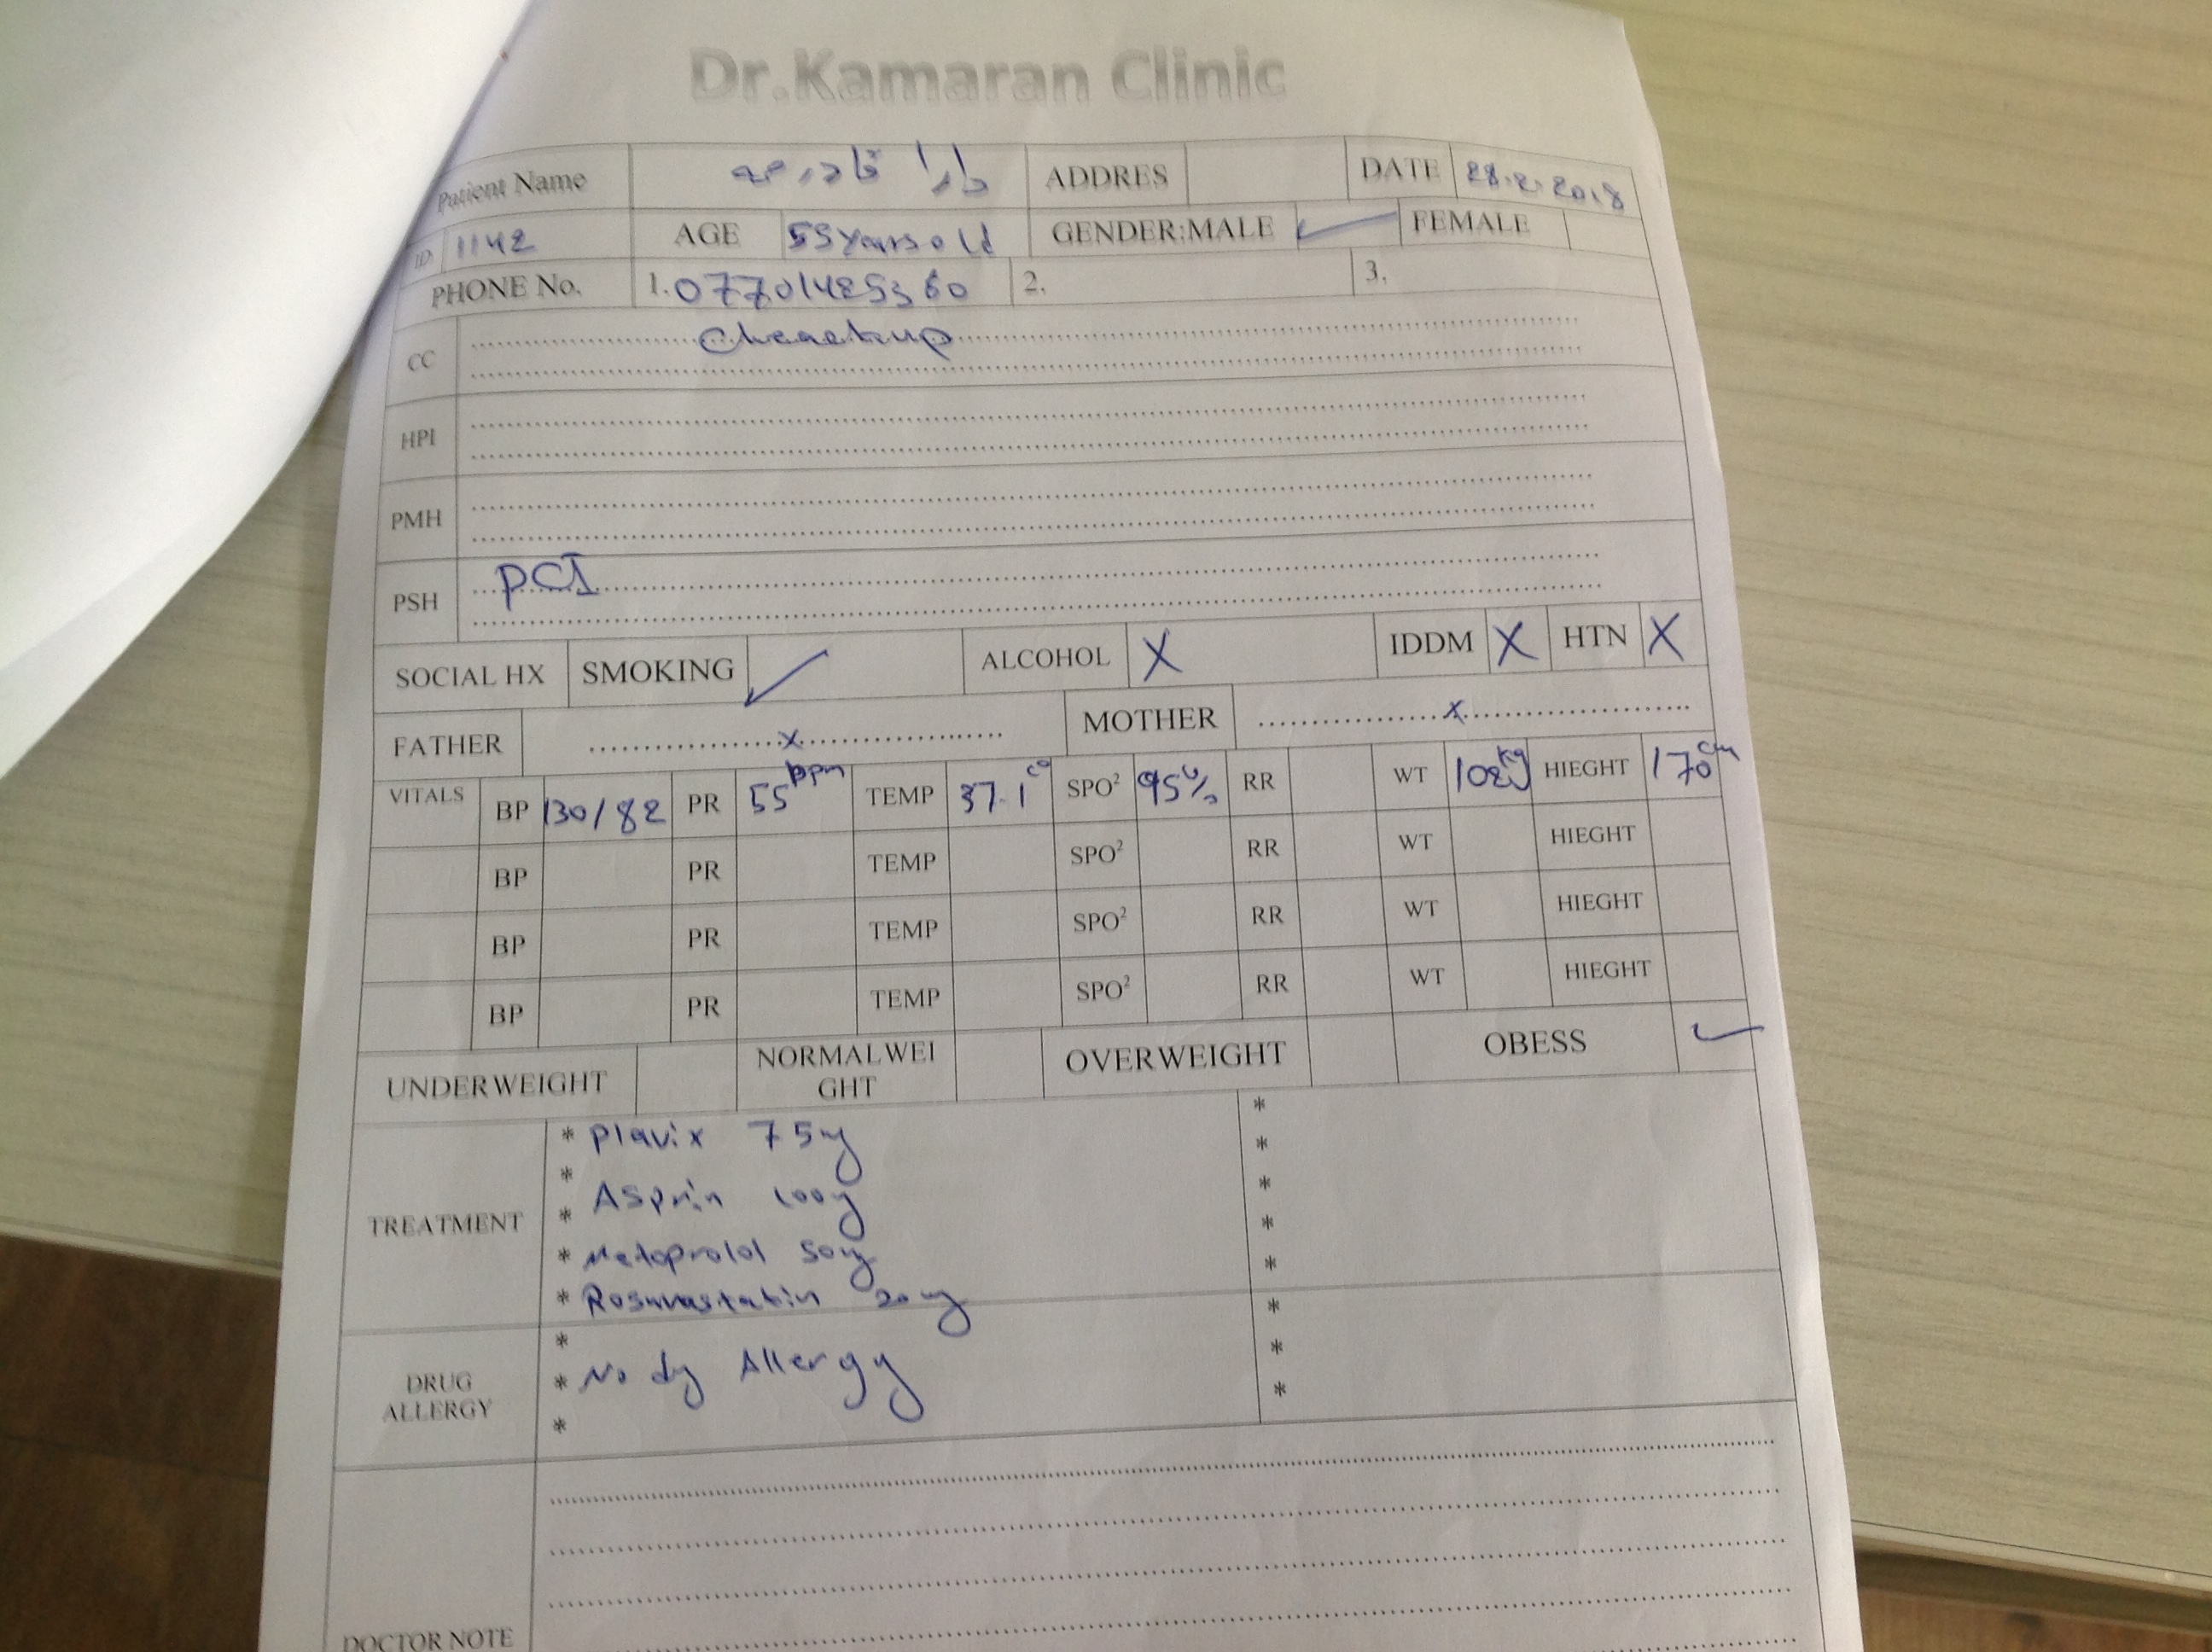 Dr.Kamaran Clinic
Patient Name دارا قادر ADDRES DATE 28.2.2018
ID: 1142 AGE 55 years old GENDER:MALE ✓ FEMALE
PHONE No. 1. 2. 3.
CC Cheackup
HPI
PMH
PSH PCI
SOCIAL HX SMOKING ✓ ALCOHOL X IDDM X HTN X
FATHER x MOTHER x
VITALS BP 130/82 PR 55 bpm TEMP 37.1 c° SPO² 95% RR WT 102 kg HIEGHT 170 cm
BP PR TEMP SPO² RR WT HIEGHT
BP PR TEMP SPO² RR WT HIEGHT
BP PR TEMP SPO² RR WT HIEGHT
UNDERWEIGHT NORMALWEIGHT OVERWEIGHT OBESS ✓
TREATMENT
* Plavix 75mg *
* Asprin 100mg *
* Metoprolol 50mg *
* Rosuvastatin 20mg *
DRUG ALLERGY
* No drug Allergy *
DOCTOR NOTE